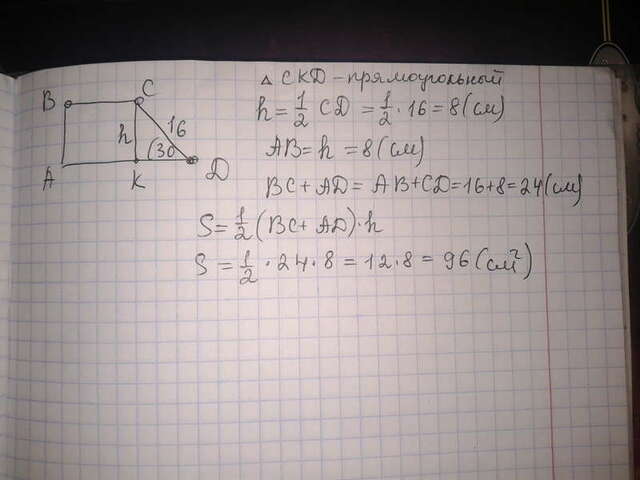 B C
h 16
30
A K D
△ CKD – прямоугольный
h = 1/2 CD = 1/2 · 16 = 8 (см)
AB = h = 8 (см)
BC + AD = AB + CD = 16 + 8 = 24 (см)
S = 1/2 (BC + AD) · h
S = 1/2 · 24 · 8 = 12 · 8 = 96 (см²)